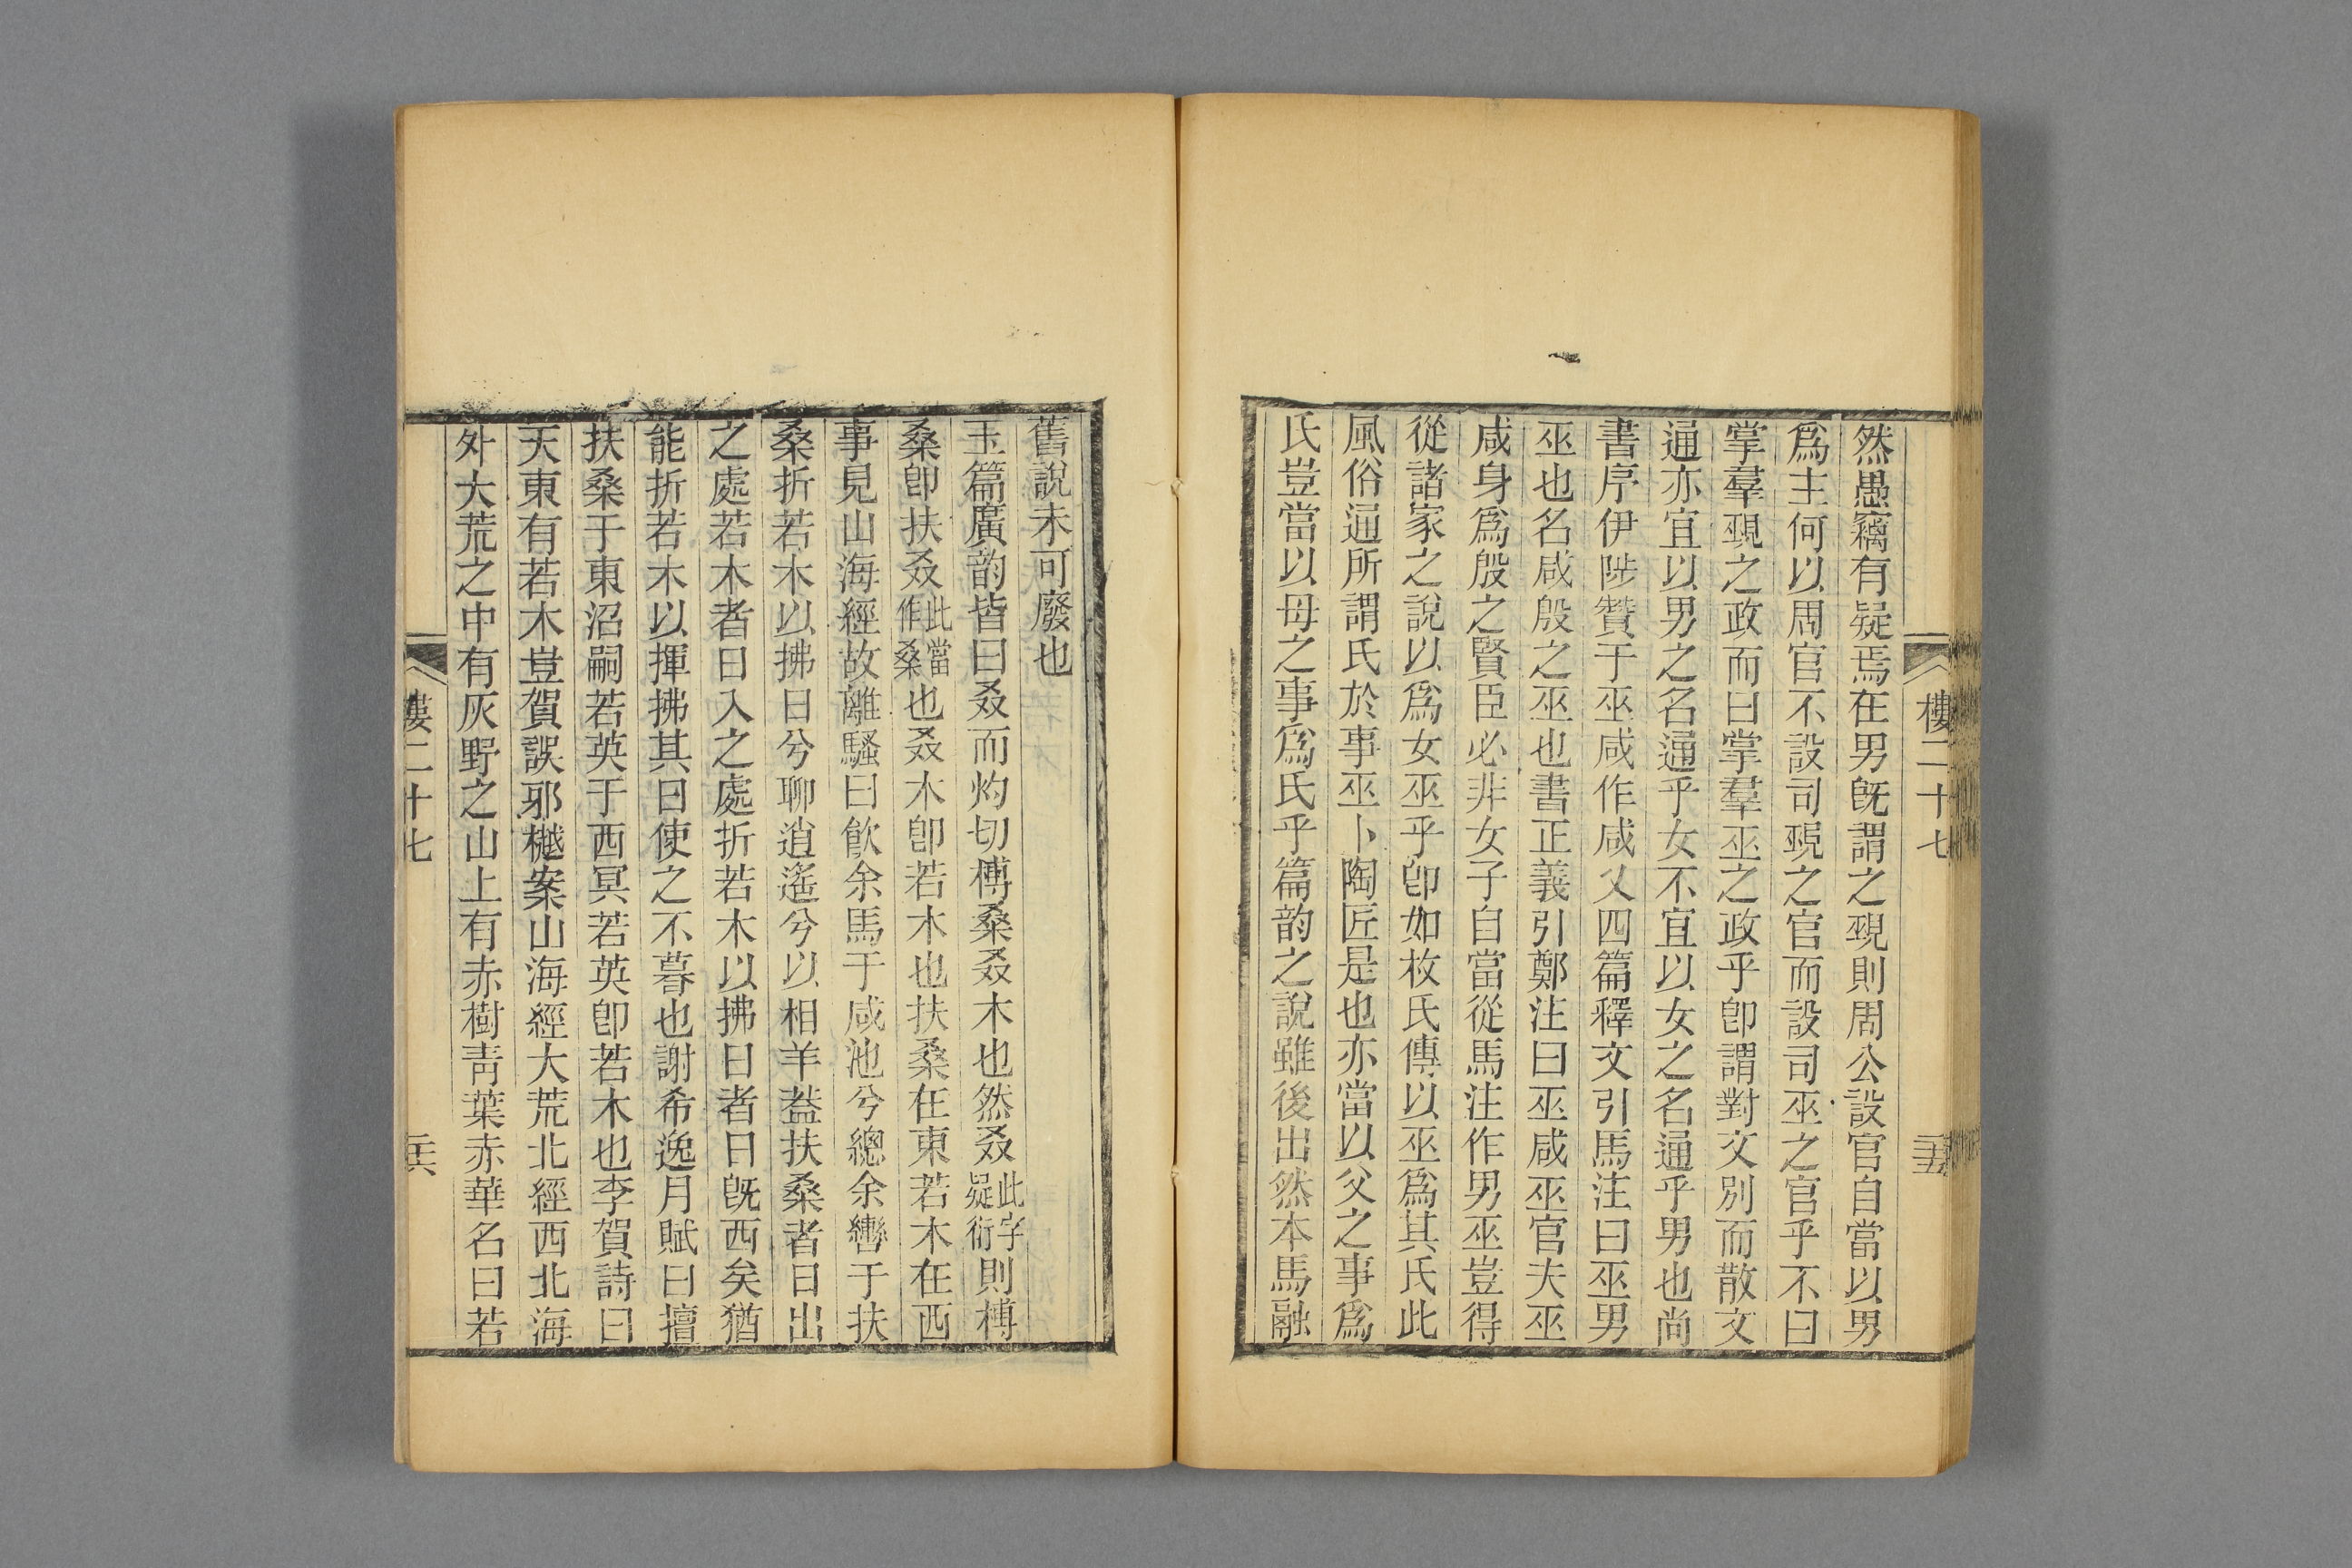 樓二十七
二十五
然愚竊有疑焉在男旣謂之覡則周公設官自當以男
爲主何以周官不設司覡之官而設司巫之官乎不曰
掌羣覡之政而曰掌羣巫之政乎卽謂對文別而散文
通亦宜以男之名通乎女不宜以女之名通乎男也尚
書序伊陟贊于巫咸作咸乂四篇釋文引馬注曰巫男
巫也名咸殷之巫也書正義引鄭注曰巫咸巫官夫巫
咸身爲殷之賢臣必非女子自當從馬注作男巫豈得
從諸家之說以爲女巫乎卽如枚氏傳以巫爲其氏此
風俗通所謂氏於事巫卜陶匠是也亦當以父之事爲
氏豈當以母之事爲氏乎篇韵之說雖後出然本馬融
舊說未可廢也
玉篇廣韵皆曰叒而灼切榑桑叒木也然叒此字疑衍則榑
桑卽扶叒此當作桑也叒木卽若木也扶桑在東若木在西
事見山海經故離騷曰飮余馬于咸池兮總余轡于扶
桑折若木以拂日兮聊逍遙兮以相羊葢扶桑者日出
之處若木者日入之處折若木以拂日者日旣西矣猶
能折若木以揮拂其日使之不暮也謝希逸月賦曰擅
扶桑于東沼嗣若英于西冥若英卽若木也李賀詩曰
天東有若木豈賀誤邪樾案山海經大荒北經西北海
外大荒之中有灰野之山上有赤樹靑葉赤華名曰若
樓二十七
二十六